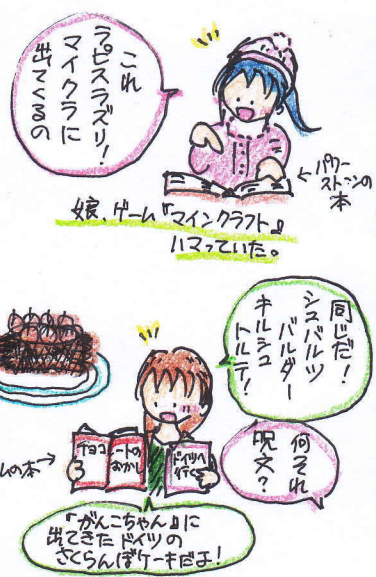 これ
ラピスラズリ!
マイクラに
出てくるの
←パワー
ストーンの
本
娘、ゲーム『マインクラフト』
ハマっていた。
同じだ!
シュバルツ
バルダー
キルシュ
トルテ!
何それ
呪文?
チョコ
レートの
おかし
ドイツへ
行く
の本→
『がんこちゃん』に
出てきたドイツの
さくらんぼケーキだよ!